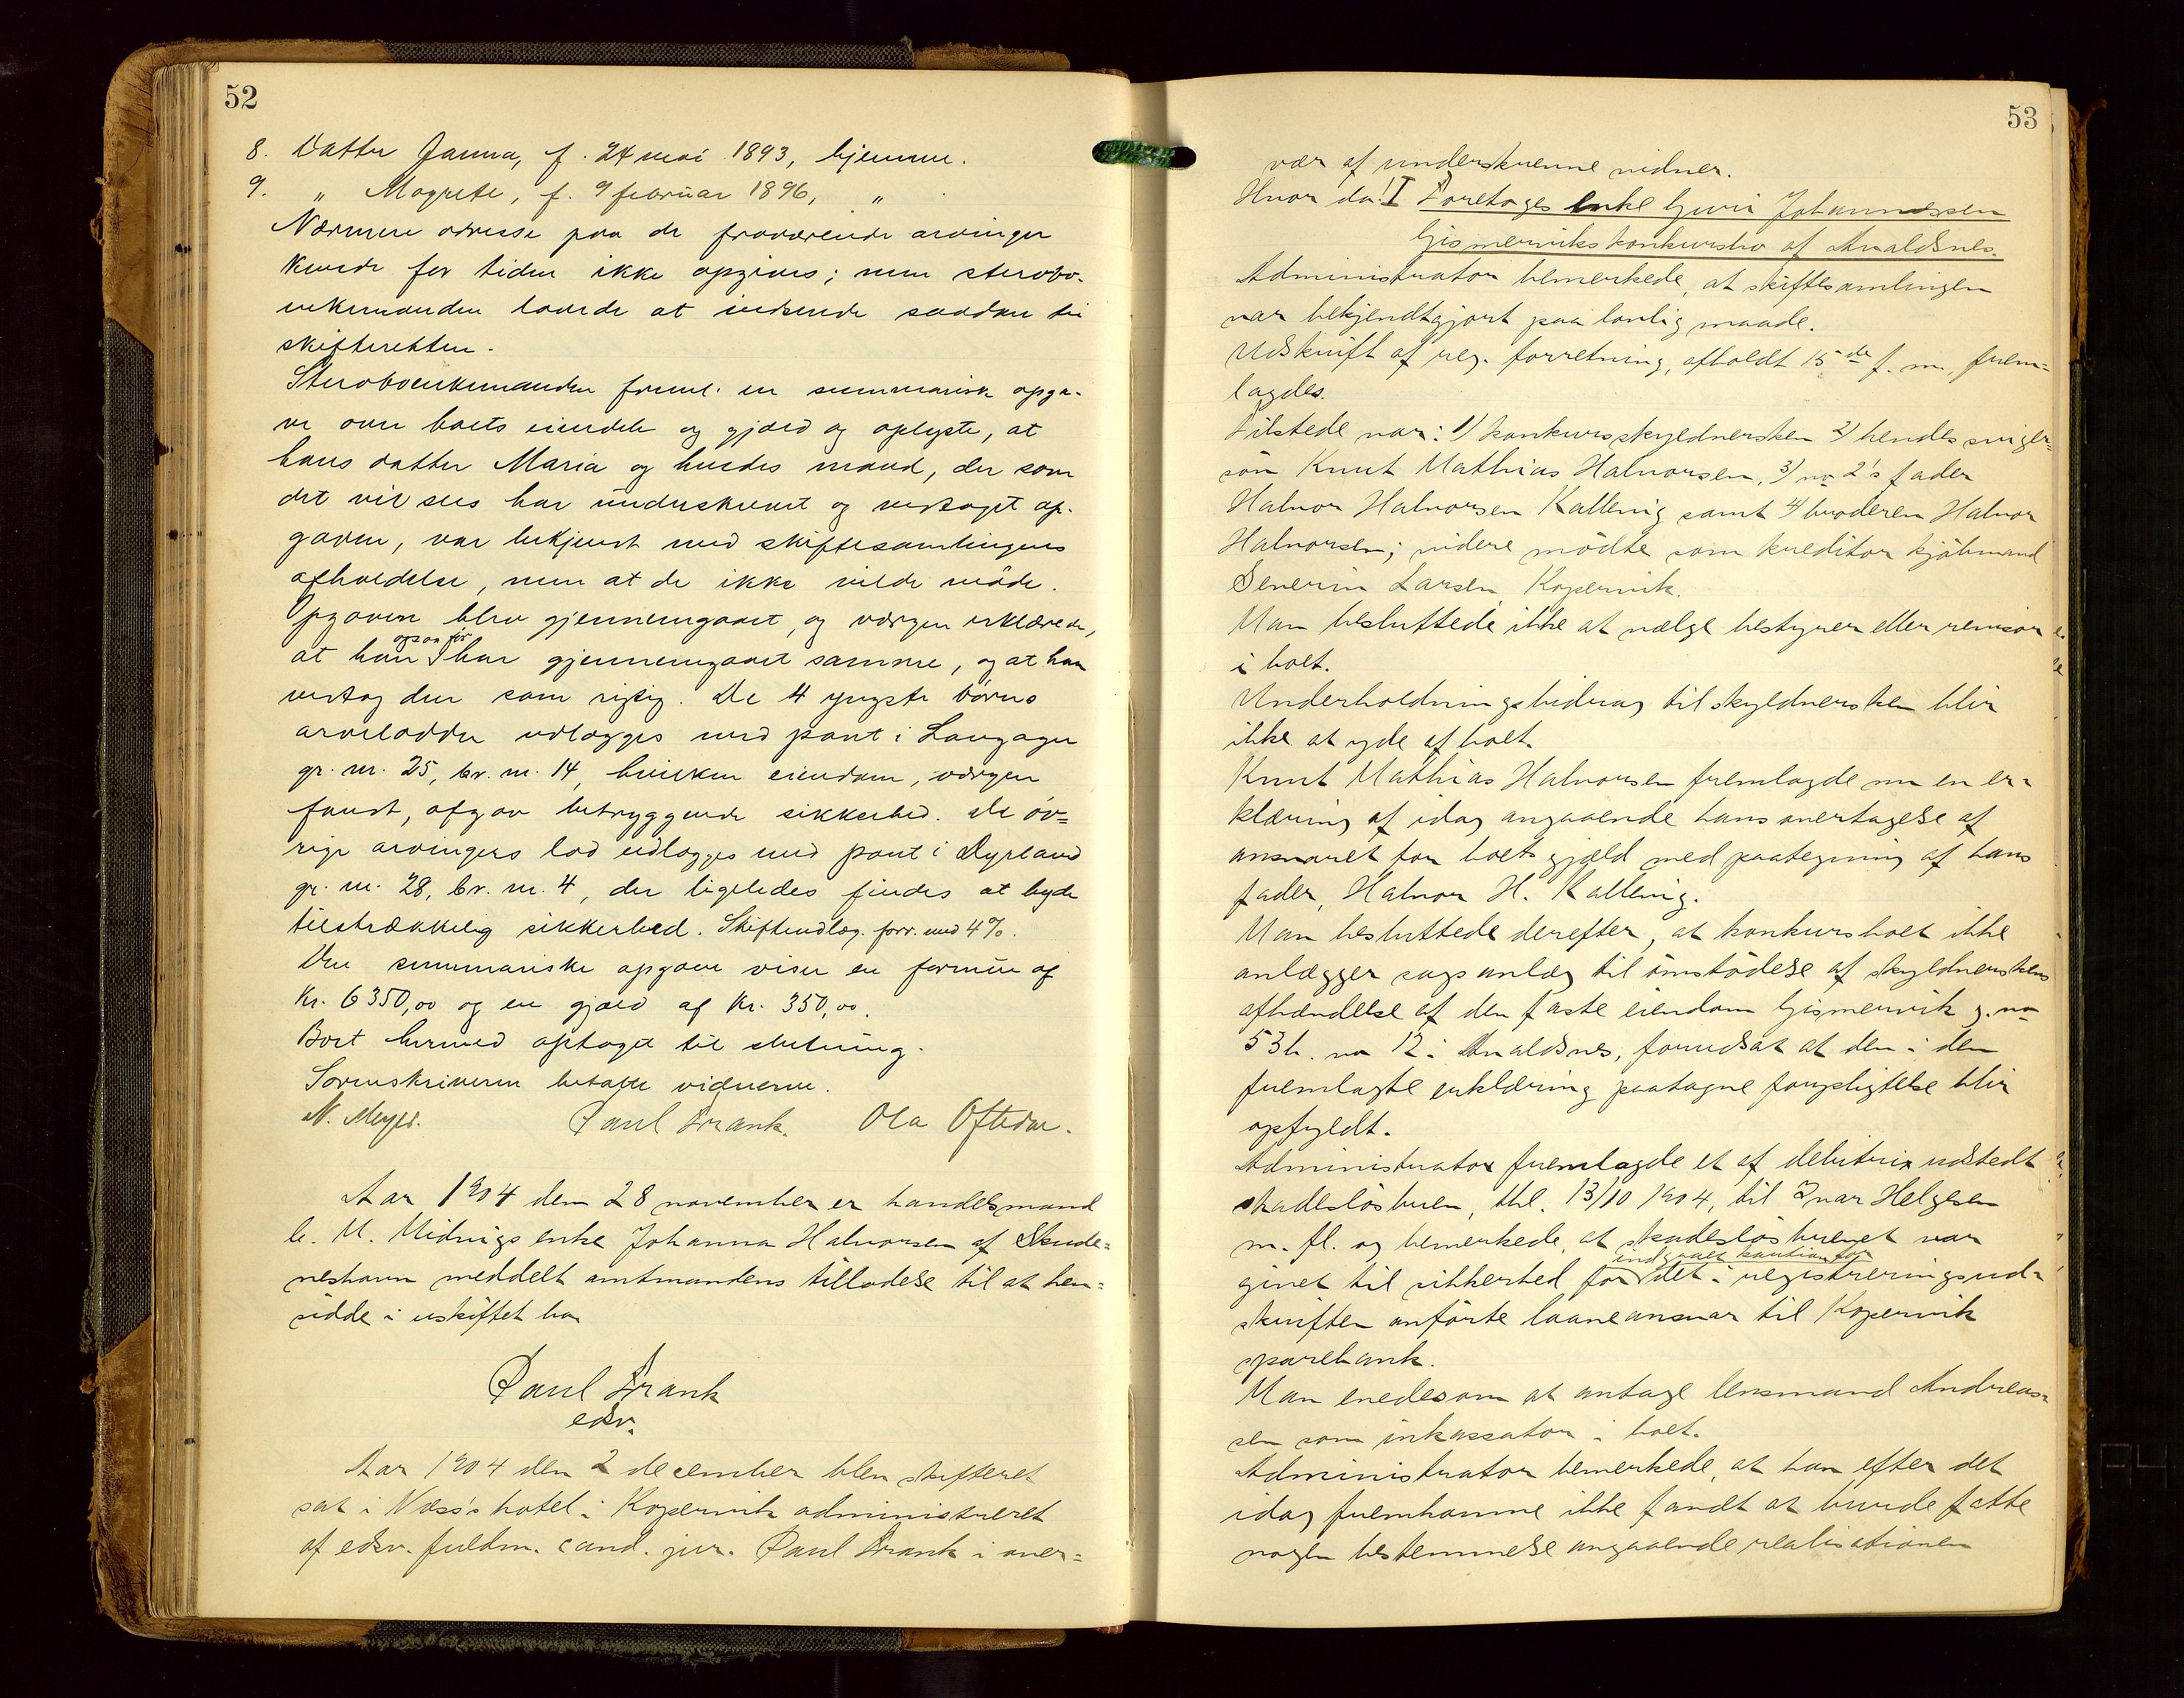 52
8. Datter Janna, f. 24 mai 1893, hjemme.
9. " Magrete, f. 9 februar 1896, "
Nærmere adresse paa de fraværende arvinger
kunde for tiden ikke opgives; men stervbo-
enkemanden lovede at indsende saadan til
skifteretten.
Stervboenkemanden freml. en summarisk opga-
ve over boets eiendele og gjæld og oplyste, at
hans datter Maria og hendes mand, der som
det vil sees har underskrevet og vedtaget op-
gaven, var bekjendt med skiftesamlingens
afholdelse, men at de ikke vilde møde.
Opgaven blev gjennemgaaet, og værgen erklærede,
ogsaa før
at han har gjennemgaaet samme, og at han
vedtog den som rigtig. De 4 yngste børns
arvelodder udlægges med pant i Langager
gr. nr. 25, br. nr. 14, hvilken eiendom, værgen
fandt, afgav betryggende sikkerhed. De øv=
rige arvingers lod udlægges med pant i Dyrland
gr. nr. 28, br. nr. 4, der ligeledes findes at byde
tilstrækkelig sikkerhed. Skifteudlæg. forr. med 4%.
Den summariske opgave viser en formue af
Kr. 6350,00 og en gjæld af Kr. 350,00.
Boet hermed optaget til slutning.
Sorenskriveren betalte vidnerne.
N. Meyer. Paul Frank. Ola Oftedal.
Aar 1904 den 28 november er handelsmand
C. M. Midnigs enke Johanna Halvorsen af Skude=
neshavn meddelt amtmandens tilladelse til at hen=
sidde i uskiftet bo
Paul Frank
edsv.
Aar 1904 den 2 december blev skifteret
sat i Næss's hotel i Kopervik administreret
af edsv. fuldm. cand. jur. Paul Frank i over=
53
vær af underskrevne vidner.
Hvor da: I Foretoges enke Gjuri Johannessen
Gismerviks konkursbo af Avaldsnes.
Administrator bemerkede, at skiftesamlingen
var bekjendtgjort paa lovlig maade.
Udskrift af reg. forretning, afholdt 15de f. m., frem=
lagdes.
Tilstede var: 1) konkursskyldnersken 2) hendes sviger=
søn Knut Mathias Halvorsen, 3) no 2's fader
Halvor Halvorsen Kallevig samt 4) broderen Halvor
Halvorsen; videre mødte som kreditor kjøbmand
Severin Larsen, Kopervik.
Man besluttede ikke at vælge bestyrer eller revisor
i boet.
Underholdningsbidrag til skyldnersken blir
ikke at yde af boet.
Knut Mathias Halvorsen fremlagde nu en er=
klæring af idag angaaende hans overtagelse af
ansvaret for boets gjæld med paategning af hans
fader, Halvor H. Kallevig.
Man besluttede derefter, at konkursboet ikke
anlægger sagsanlæg til omstødelse af skyldnerskens
afhændelse af den faste eiendom Gismervik g. no
53 b. no 12 i Avaldsnes, forudsat at den i den
fremlagte erklæring paatagne forpligtelse blir
opfyldt.
Administrator fremlagde et af debitrix udstedt
skadesløsbrev, thl. 13/10 1904, til Ivar Helgesen
m. fl. og bemerkede, at skadesløsbrevet var
indgaaet kaution for
givet til sikkerhed for det i registreringsud=
skriften anførte laaneansvar til Kopervik
sparebank.
Man enedes om at antage lensmand Andreas=
sen som inkassator i boet.
Administrator bemerkede, at han efter det
idag fremkomne ikke fandt at burde fatte
nogen bestemmelse angaaende realisationen